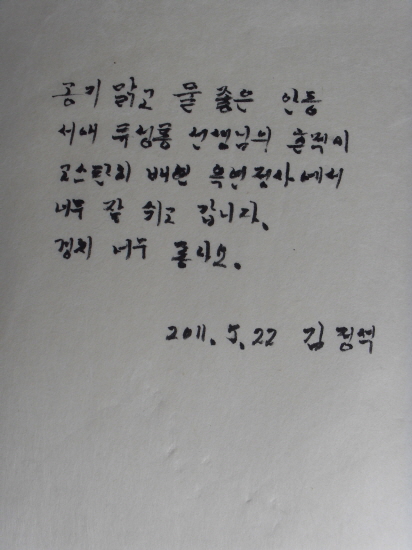 공기 맑고 물 좋은 안동
서애 류성룡 선생님의 흔적이
고스란히 배인 옥연정사에서
너무 잘 쉬고 갑니다.
경치 너무 좋사오.
2011. 5. 22 김정석